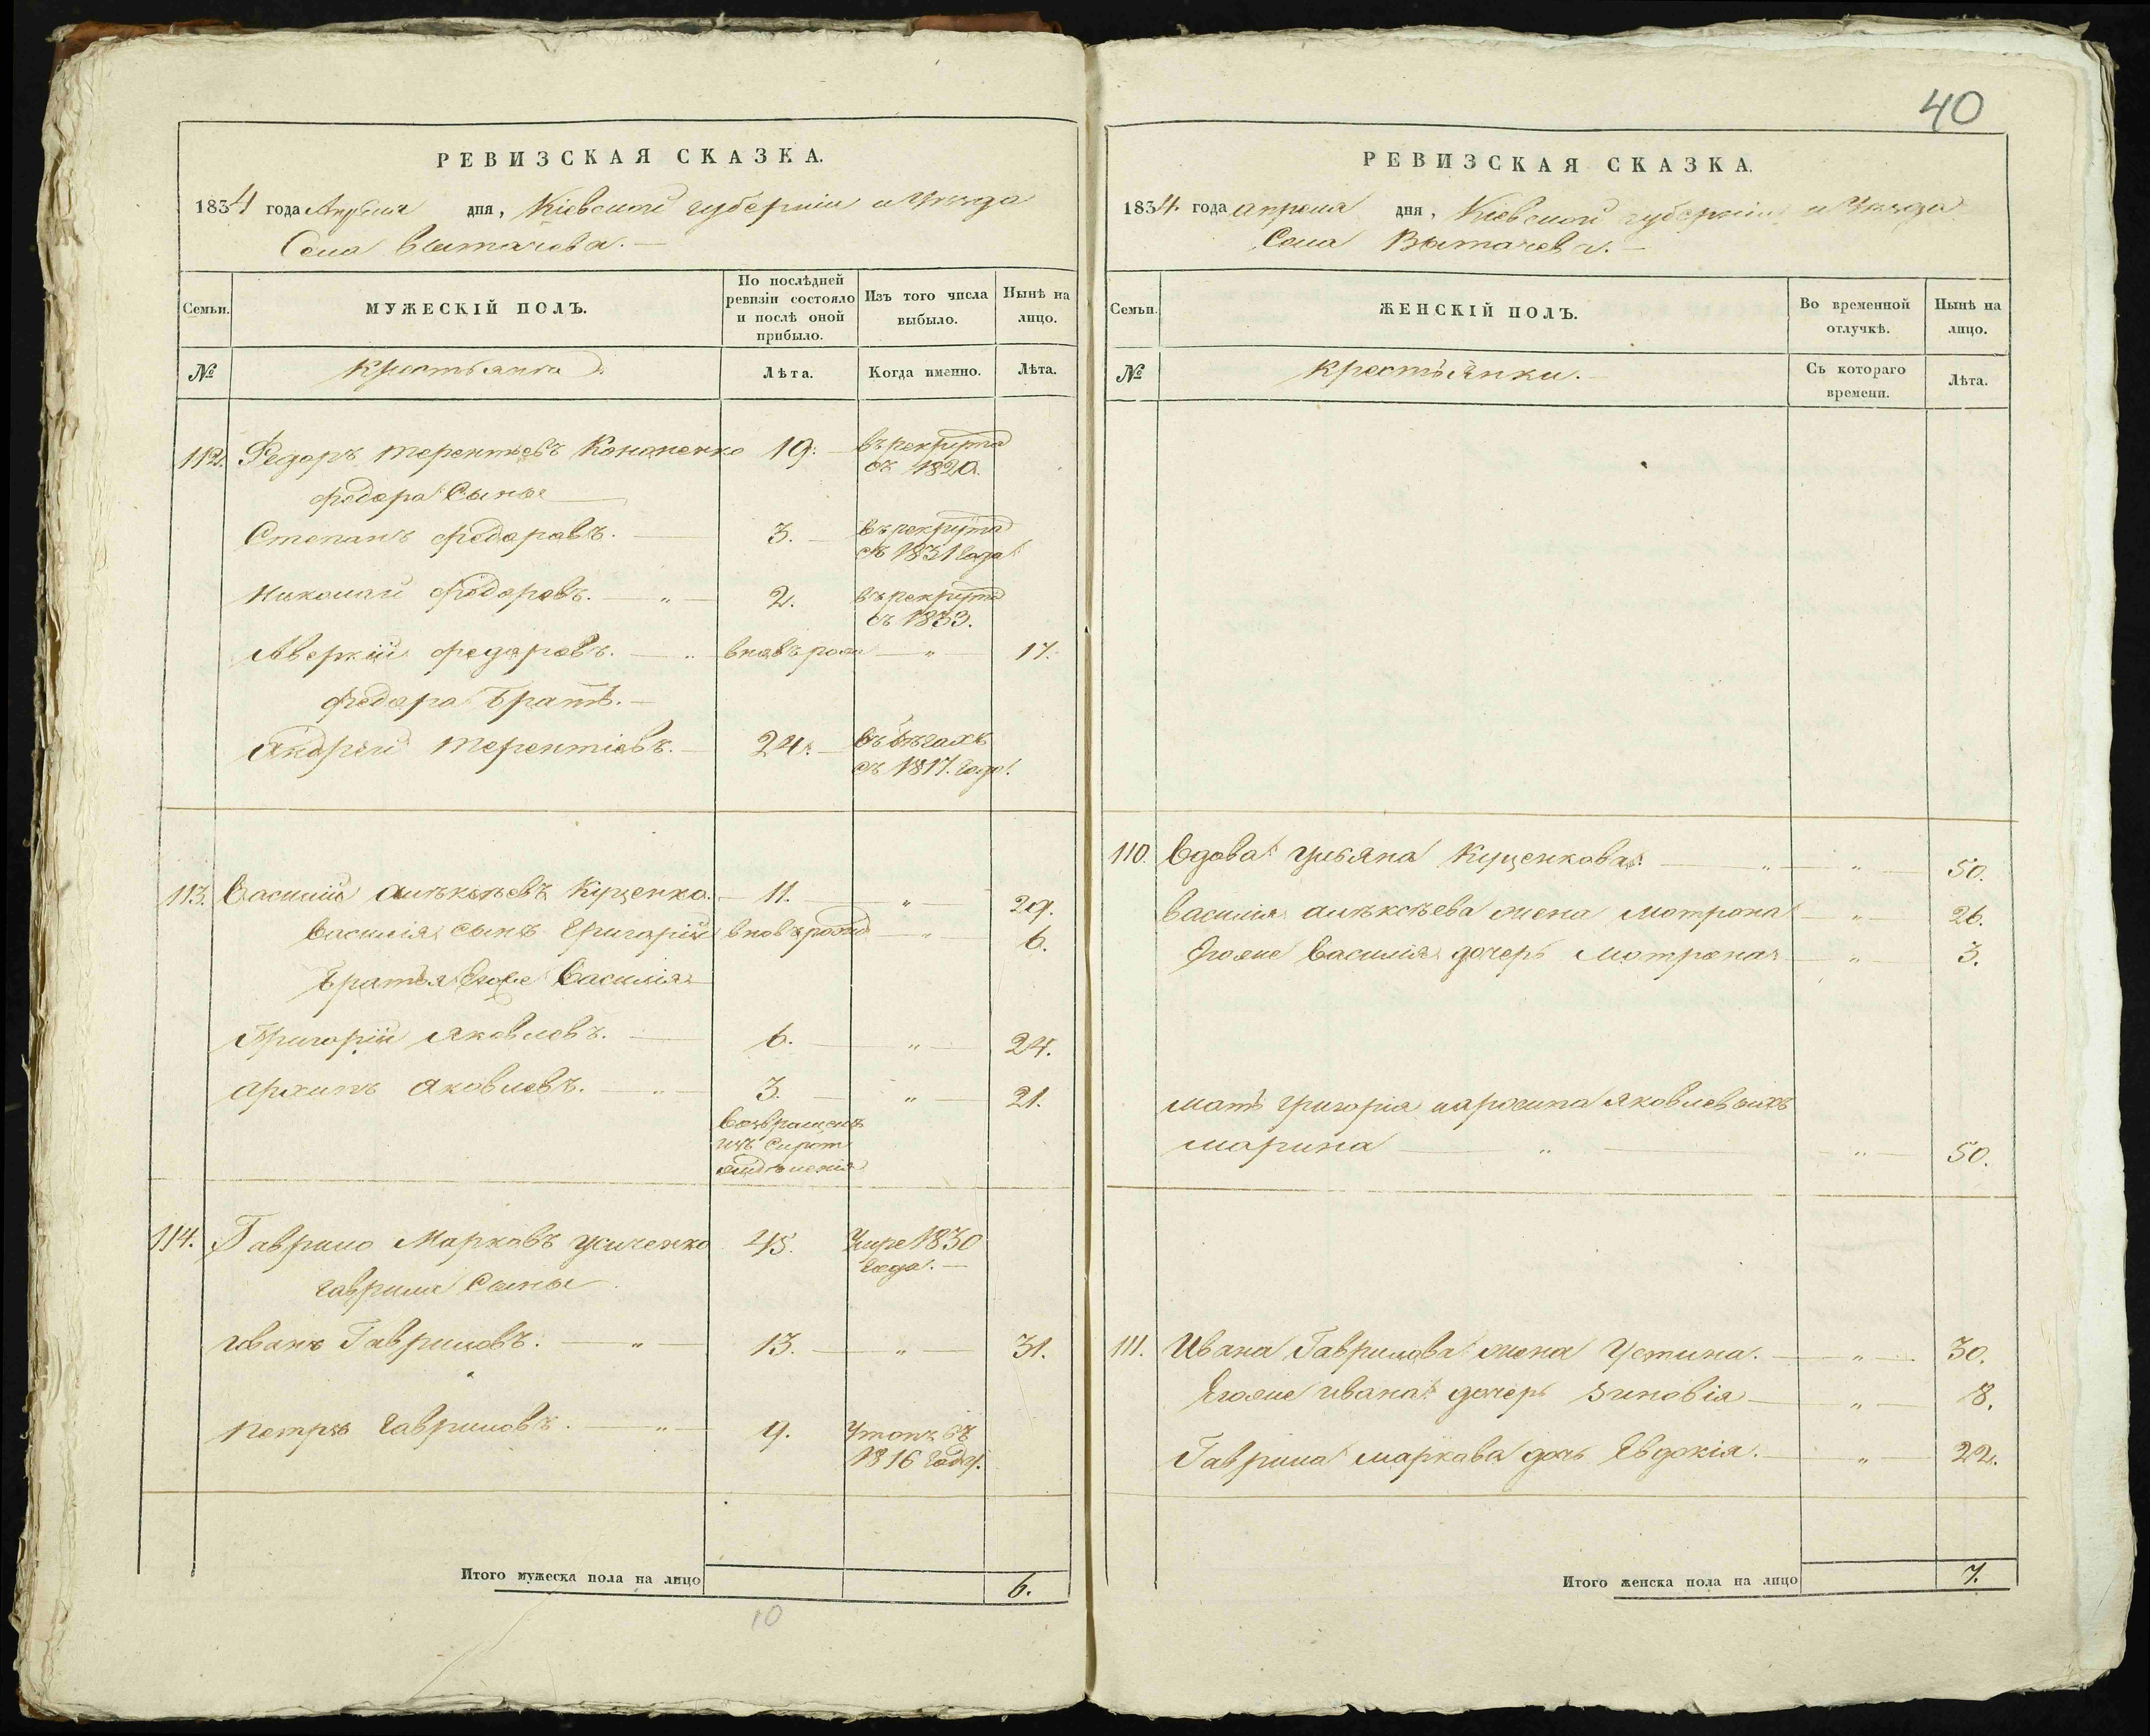 РЕВИЗСКАЯ СКАЗКА.
1834 года Апреля дня, Кіевской губерніи и Уезда
Села Вытачева.
Семьи. МУЖЕСКІЙ ПОЛЪ. По послѣдней ревизіи состояло и послѣ оной прибыло. Изъ того числа выбыло. Нынѣ на лицо.
№ Крестьяне Лѣта. Когда именно. Лѣта.
112. Федоръ Терентьевъ Кононенко 19. въ рекрута
съ 1820.
Федора Сыны
Степанъ Федоравъ. 3. въ рекрута
съ 1831 Года
Николай Федоровъ. " 2. въ рекрута
съ 1833.
Аверкій Федаровъ. " вновь рож " 17.
Федора Братъ.
Андрей Терентіевъ. 24. въ бегахъ
съ 1817. Года.
113. Василій Алѣксѣевъ Куценко. 11. " 29.
Василія сынъ Григорій вновь рожд " 6.
Братья Егоже Василія
Григорій Яковлевъ. 6. " 24.
Архипъ Яковлевъ. " 3. " 21.
Возвращенъ
изъ Сирот
отделенія
114. Гаврило Марковъ 45. Умре 1830
Года.
Гаврила Сыны
Иванъ Гавриловъ. " 13. " 31.
Петръ Гавриловъ. " 9. Утопъ въ
1816 Году.
Итого мужеска пола на лицо 6.
10
40
РЕВИЗСКАЯ СКАЗКА.
1834. года апреля дня, Кіевской губерніи и Уезда
Села Вытачева.
Семьи. ЖЕНСКІЙ ПОЛЪ. Во временной отлучкѣ. Нынѣ на лицо.
№ Крестьянки. Съ котораго времени. Лѣта.
110. Вдова Ульяна Куценкова. " " 50.
Василія Алѣксѣева жена Мотрона " 26.
Егоже Василія дочерь Мотрона " 3.
мать Григорія и Архипа Яковлевыхъ
Марина " " 50.
111. Ивана Гаврилова жена Устина. " 30.
Егоже Ивана дочерь Зиновія " 8.
Гаврила Маркава дочь Евдокія. " 22.
Итого женска пола на лицо 7.